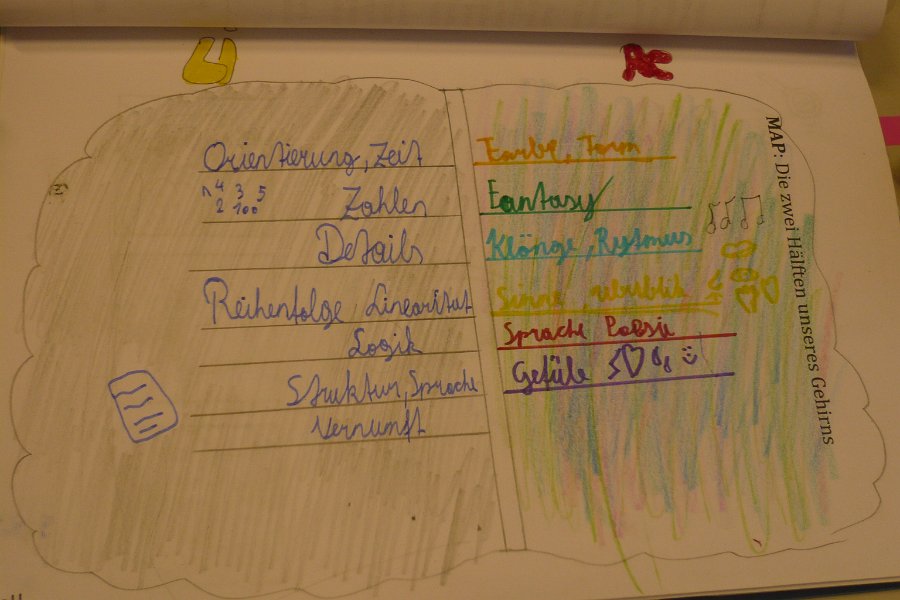 Li
Re
MAP: Die zwei Hälften unseres Gehirns
Orientierung, Zeit
1 4 3 5
2 100
Zahlen
Details
Reihenfolge Linearität
Logik
Struktur, Sprache
Vernunft
Farbe, Form
Fantasy
Klänge, Rytmus
Sinne
Sprache Poesie
Gefüle